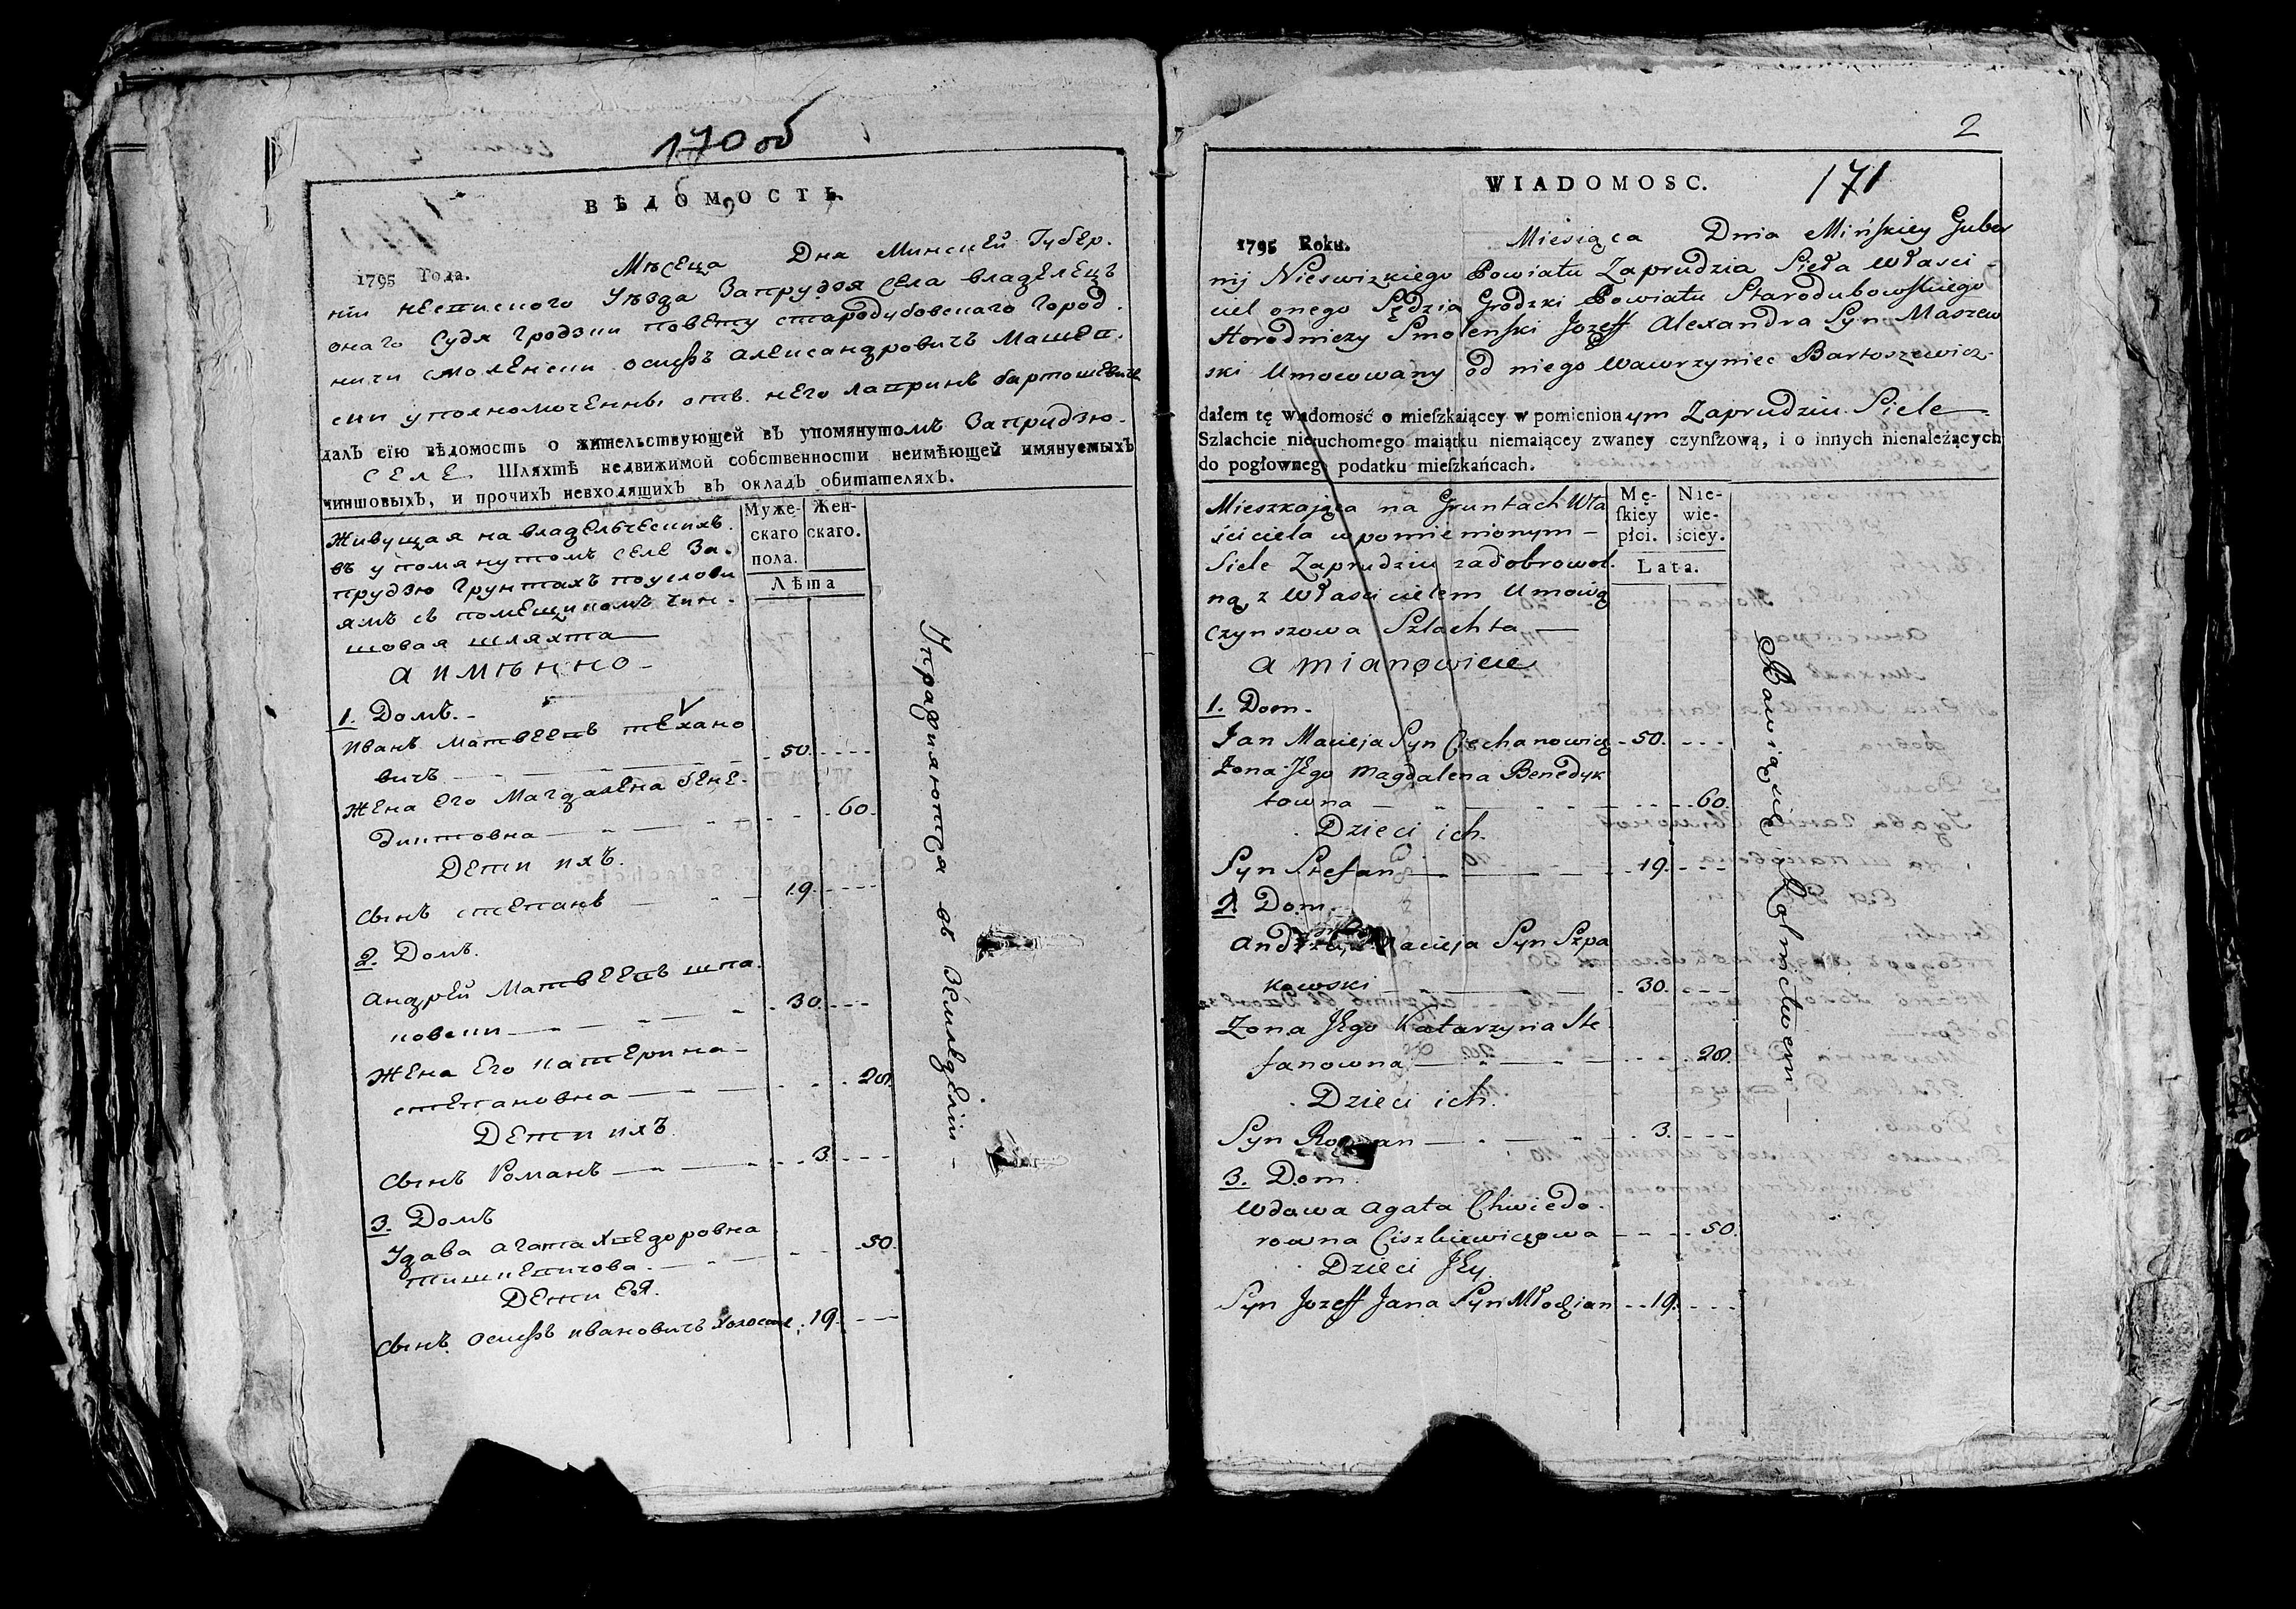 170 об
ВѢДОМОСТЬ
1795 Года. Мѣсеца Дня Минскей Губер.
ніи Несвиского Уѣзда Запрудзя Села владелецъ
онаго Судя Гродзки повету стародубовскаго Город.
ничи смоленски осифъ александровичъ Машев.
ски уполномоченны отъ него лавринъ бартошевичъ
далъ сїю вѣдомость о жительствующей въ упомянутомъ Запрудзю
селе Шляхтѣ недвижимой собственности неимѣющей имянуемыхъ
чиншовыхъ, и прочихъ невходящихъ въ окладъ обитателяхъ.
Живущая на владельческихъ
въ упомянутомъ селе За.
прудзю Грунтахъ поуслови
ямъ съ помещикомъ чин.
шовая шляхта
а имѣнно
Муже-
скаго
пола.
Жен-
скаго.
Лѣта
1. Домъ.
иванъ матвеевъ техано
вичъ 50.
Жена его Магдалена бене.
диктовна 60.
Дети ихъ.
Сынъ степанъ 19.
2. Домъ.
андрей матвеевъ шпа.
ковски 30.
Жена его катерина
степановна 28.
Дети ихъ
Сынъ Романъ 3.
3. Домъ
Удава агата Хведоровна
тишкевичова 50.
Дети ея.
Сынъ осифъ ивановичъ холосты 19.
Упражняютса въ Земледелiи
2
171
WIADOMOSC.
1795 Roku. Miesiąca Dnia Mińskiey Guber
nij Nieswizkiego Powiatu Zaprudzia Sieła Własci
ciel onego Sędzia Grodzki Powiatu Starodubowskiego
Horodniczy Smoleński Jozeff Alexandra Syn Maszew
ski Umocowany od niego Wawrzyniec Bartoszewicz
dałem tę wiadomość o mieſzkaiącey w pomienionym Zaprudziu Siele
Szlachcie nieruchomego maiątku niemaiącey zwaney czynſzową, i o innych nienależących
do pogłownego podatku mieſzkańcach.
Mieszkająca na Gruntach Wła
ściciela w pomienionym
Siele Zaprudziu zadobrowol.
ną z Właścicielem Umową
Czynszowa Szlachta
a mianowicie
Mę-
ſkiey
płci.
Nie-
wie-
ściey.
Lata.
1. Dom.
Jan Macieja Syn Ciechanowicz 50.
Zona Jego Magdalena Benedyk
towna 60.
Dzieci ich.
Syn Stefan 19.
2. Dom.
Andrzey Macieja Syn Szpa
kowski 30.
Zona Jego Katarzyna Ste
fanowna 28.
Dzieci ich.
Syn Roman 3.
3. Dom.
Wdowa Agata Chwiedo.
rowna Ciszkiewiczowa 50.
Dzieci Jey.
Syn Jozeff Jana Syn Młodzian 19.
Bawią się Rolnictwem